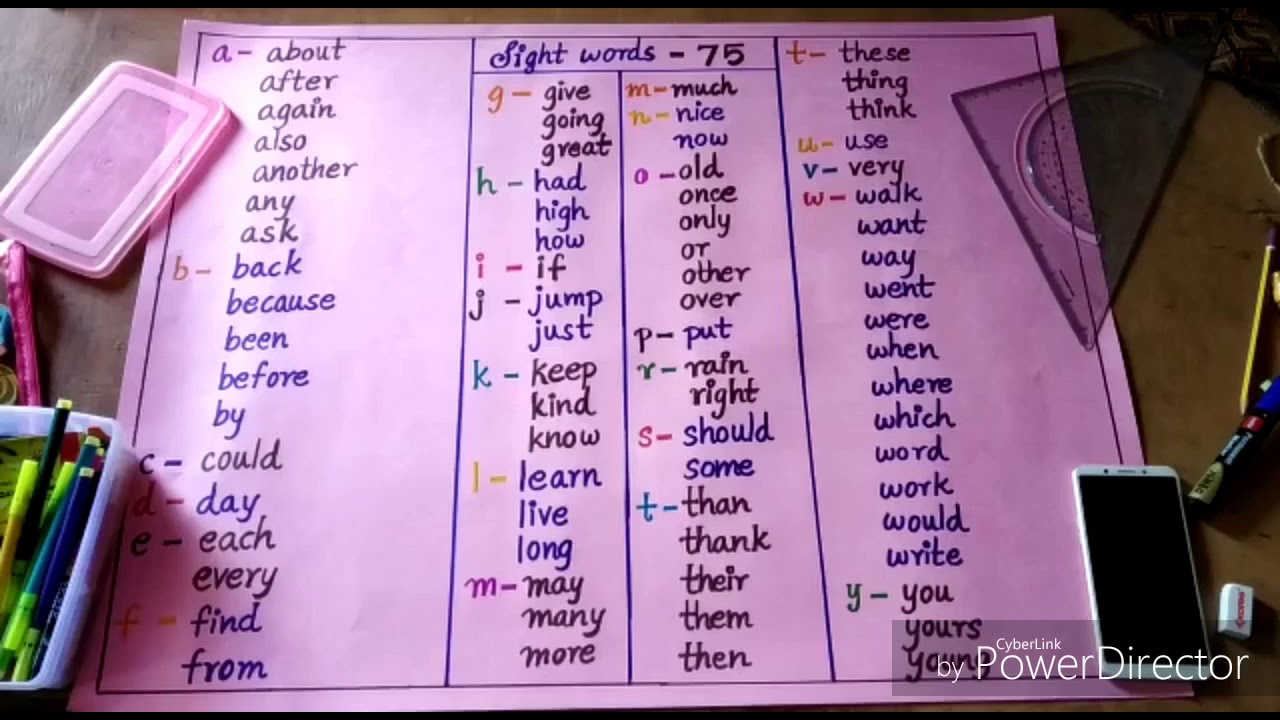 a - about
after
again
also
another
any
ask
b - back
because
been
before
by
c - could
d - day
e - each
every
f - find
from
Sight words - 75
g - give
going
great
h - had
high
how
i - if
j - jump
just
k - keep
kind
know
l - learn
live
long
m - may
many
more
m - much
n - nice
now
o - old
once
only
or
other
over
p - put
r - rain
right
s - should
some
t - than
thank
their
them
then
t - these
thing
think
u - use
v - very
w - walk
want
way
went
were
when
where
which
word
work
would
write
y - you
yours
young
CyberLink
by PowerDirector